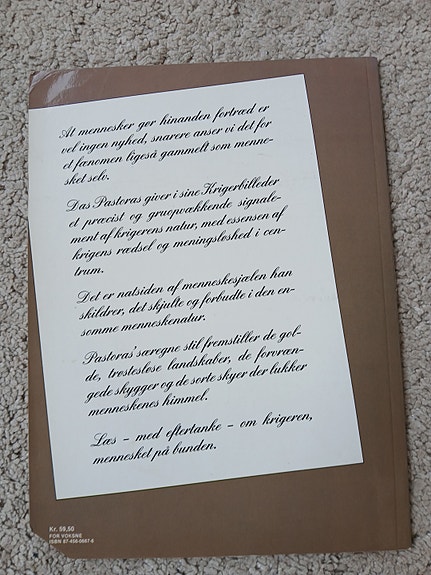 At mennesker gør hinanden fortræd er
vel ingen nyhed, snarere anser vi det for
et fænomen ligeså gammelt som menne-
sket selv.
Das Pastoras giver i sine Krigerbilleder
et præcist og gruopvækkende signale-
ment af krigerens natur, med essensen af
krigens rædsel og meningsløshed i cen-
trum.
Det er natsiden af menneskesjælen han
skildrer, det skjulte og forbudte i den en-
somme menneskenatur.
Pastoras' særegne stil fremstiller de gol-
de, trøstesløse landskaber, de forvræn-
gede skygger og de sorte skyer der lukker
menneskenes himmel.
Læs – med eftertanke – om krigeren,
mennesket på bunden.
Kr. 59,50
FOR VOKSNE
ISBN 87-456-0667-6